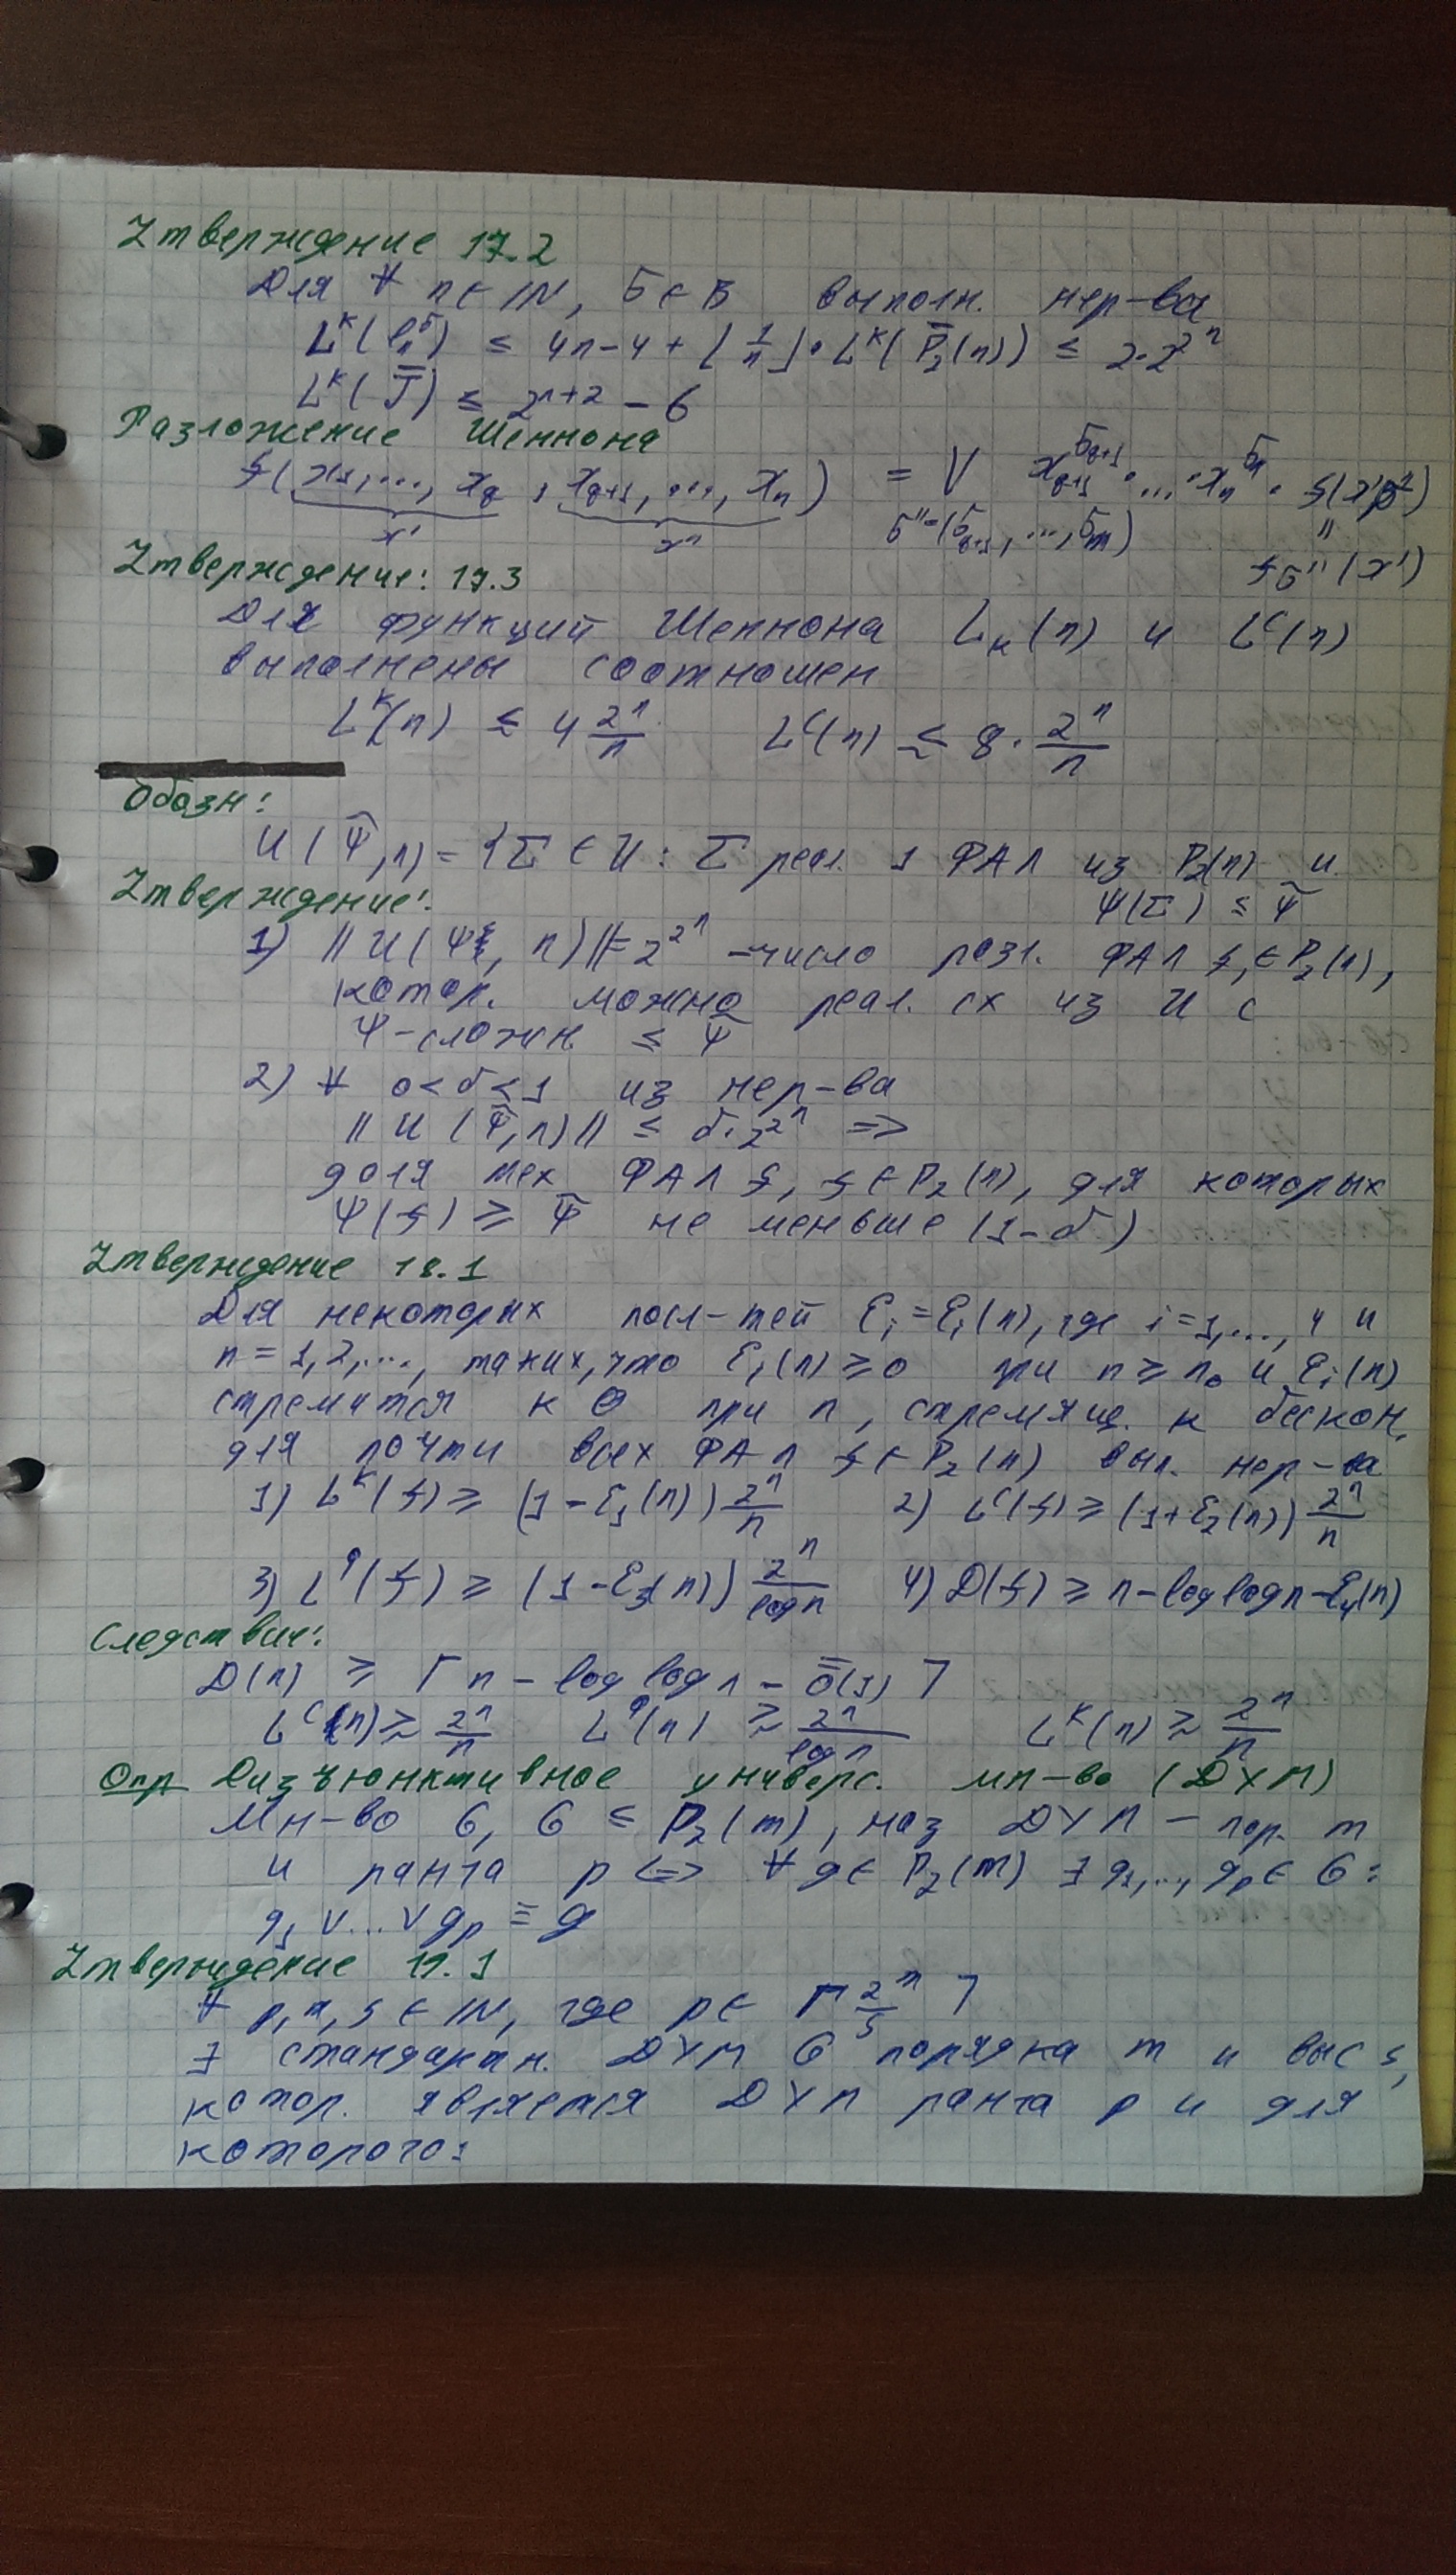 Утверждение 17.2
Для ∀ n ∈ IN, σ ∈ B выполн. нер-ва
L^K(l_n^σ) ≤ 4n-4 + ⌊1/n⌋ · L^K(P̄_2(n)) ≤ 2·2^{2^n}
L^K(J̄) ≤ 2^{n+2} - 6
Разложение Шеннона
f(x_1,..., x_q, x_{q+1}, ..., x_n) = V x_{q+1}^{σ_{q+1}} · ... · x_n^{σ_n} · f(x'σ'')
x' x'' σ''=(σ_{q+1},...,σ_m) "
f_{σ''}(x')
Утверждение: 17.3
Для функций Шеннона L_K(n) и L^C(n)
выполнены соотношен
L^K(n) ≲ 4 2^n/n L^C(n) ≲ 8 · 2^n/n
Обозн:
U(Ψ̃, n) = {Σ ∈ U : Σ реал. 1 ФАЛ из P_2(n) и
Ψ(Σ) ≤ Ψ̃
Утверждение:
1) ||U(Ψ, n)|| = 2^{2^n} - число разл. ФАЛ f, ∈ P_2(n),
котор. можно реал. сх из U с
Ψ-сложн. ≤ Ψ̃
2) ∀ 0<δ<1 из нер-ва
||U(Ψ̃, n)|| ≤ δ·2^{2^n} =>
доля тех ФАЛ f, f ∈ P_2(n), для которых
Ψ(f) ≥ Ψ̃ не меньше (1-δ)
Утверждение 18.1
Для некоторых посл-тей ε_i = ε_i(n), где i=1,..., 4 и
n = 1,2,..., таких, что ε_i(n) ≥ 0 при n ≥ n_0 и ε_i(n)
стремится к 0 при n, стремящ. к бескон.
для почти всех ФАЛ f ∈ P_2(n) вып. нер-ва
1) L^K(f) ≥ (1-ε_1(n)) 2^n/n 2) L^C(f) ≥ (1+ε_2(n)) 2^n/n
3) L^φ(f) ≥ (1-ε_3(n)) 2^n/log n 4) D(f) ≥ n-loglog n-ε_4(n)
Следствие:
D(n) ≥ ⌈n - log log n - ō(1)⌉
L^C(n) ≳ 2^n/n L^φ(n) ≳ 2^n/log n L^K(n) ≳ 2^n/n
Опр Дизъюнктивное универс. мн-во (ДУМ)
Мн-во G, G ≤ P_2(m), наз ДУМ - пор. m
и ранга p <=> ∀ g ∈ P_2(m) ∃ g_1,..., g_p ∈ G :
g_1 ∨...∨ g_p ≡ g
Утверждение 19.1
∀ p, m, s ∈ IN, где p ∈ ⌈2^m/s⌉
∃ стандартн. ДУМ G порядка m и выс s,
котор. является ДУМ ранга p и для
которого: